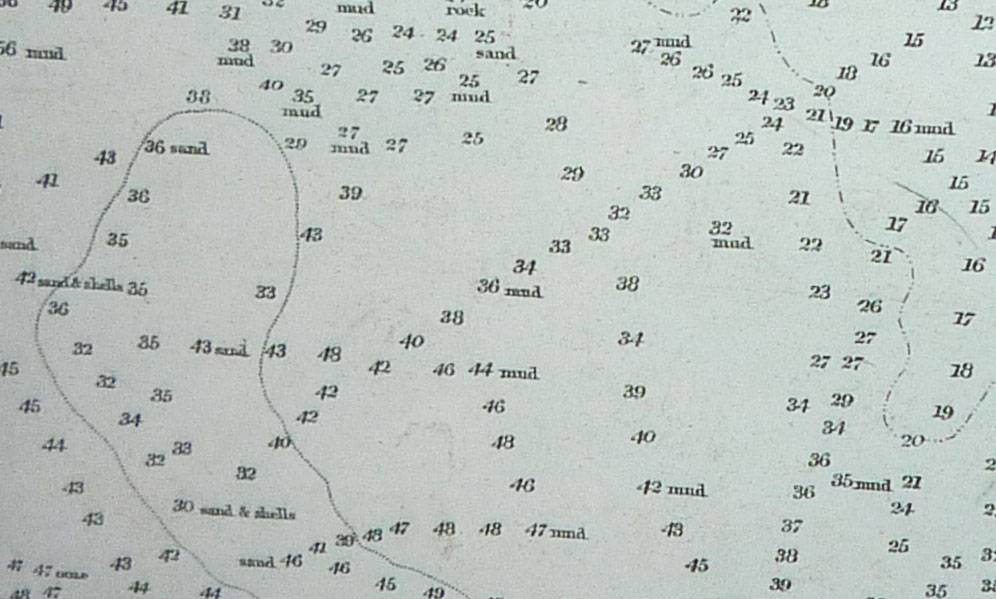 49 45 41 31 32 mud rock 20 22 18 13
29 26 24 24 25 12
56 mud 38 30 sand 27 mud 15
mud 27 25 26 26 16 13
40 25 27 26 25 18
38 35 27 27 mud 24 23 20
mud 28 24 21 19 17 16 mud
43 36 sand 29 27 mud 27 25 25 22 15 14
41 27
36 39 29 30 15
33 21 16 15
35 43 32 17
sand 33 33 32 mud 22 21 16
42 sand & shells 35 33 34
36 36 mud 38 23 26 17
38 27
32 35 43 sand 43 48 40 34 27 27
45 42 46 44 mud 18
32 35 42 39 34 29 19
45 34 42 46 34
44 33 40 48 40 20
32 32 36
43 30 sand & shells 46 42 mud 36 35 mud 21
43 24
39 48 47 48 48 47 mud 43 37
41 25
47 47 43 42 sand 46 46 45 38 35
44 44 45 49 39 35
48 47